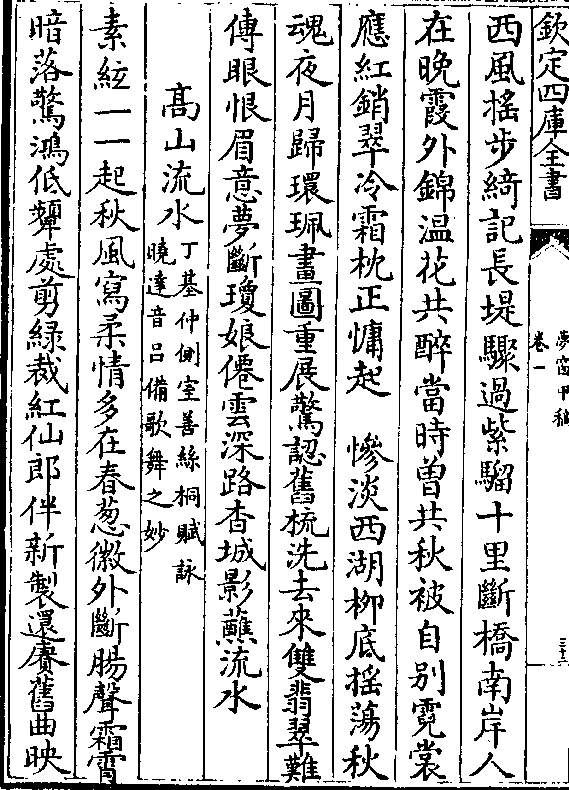 欽定四庫全書
夢窗甲稿
卷一
西風搖步綺記長堤驟過紫騮十里斷橋南岸人
在晚霞外錦温花共醉當時曾共秋被自别霓裳
應紅銷翠冷霜枕正慵起　慘淡西湖柳底搖蕩秋
魂夜月歸環珮畫圖重展驚認舊梳洗去來雙翡翠難
傳眼恨眉意夢斷瓊娘僊雲深路杳城影蘸流水
髙山流水
丁基仲側室善絲桐賦詠
曉達音吕備歌舞之妙
素絃一一起秋風寫柔情多在春葱徽外斷腸聲霜霄
暗落驚鴻低顰處剪緑裁紅仙郎伴新製還賡舊曲映